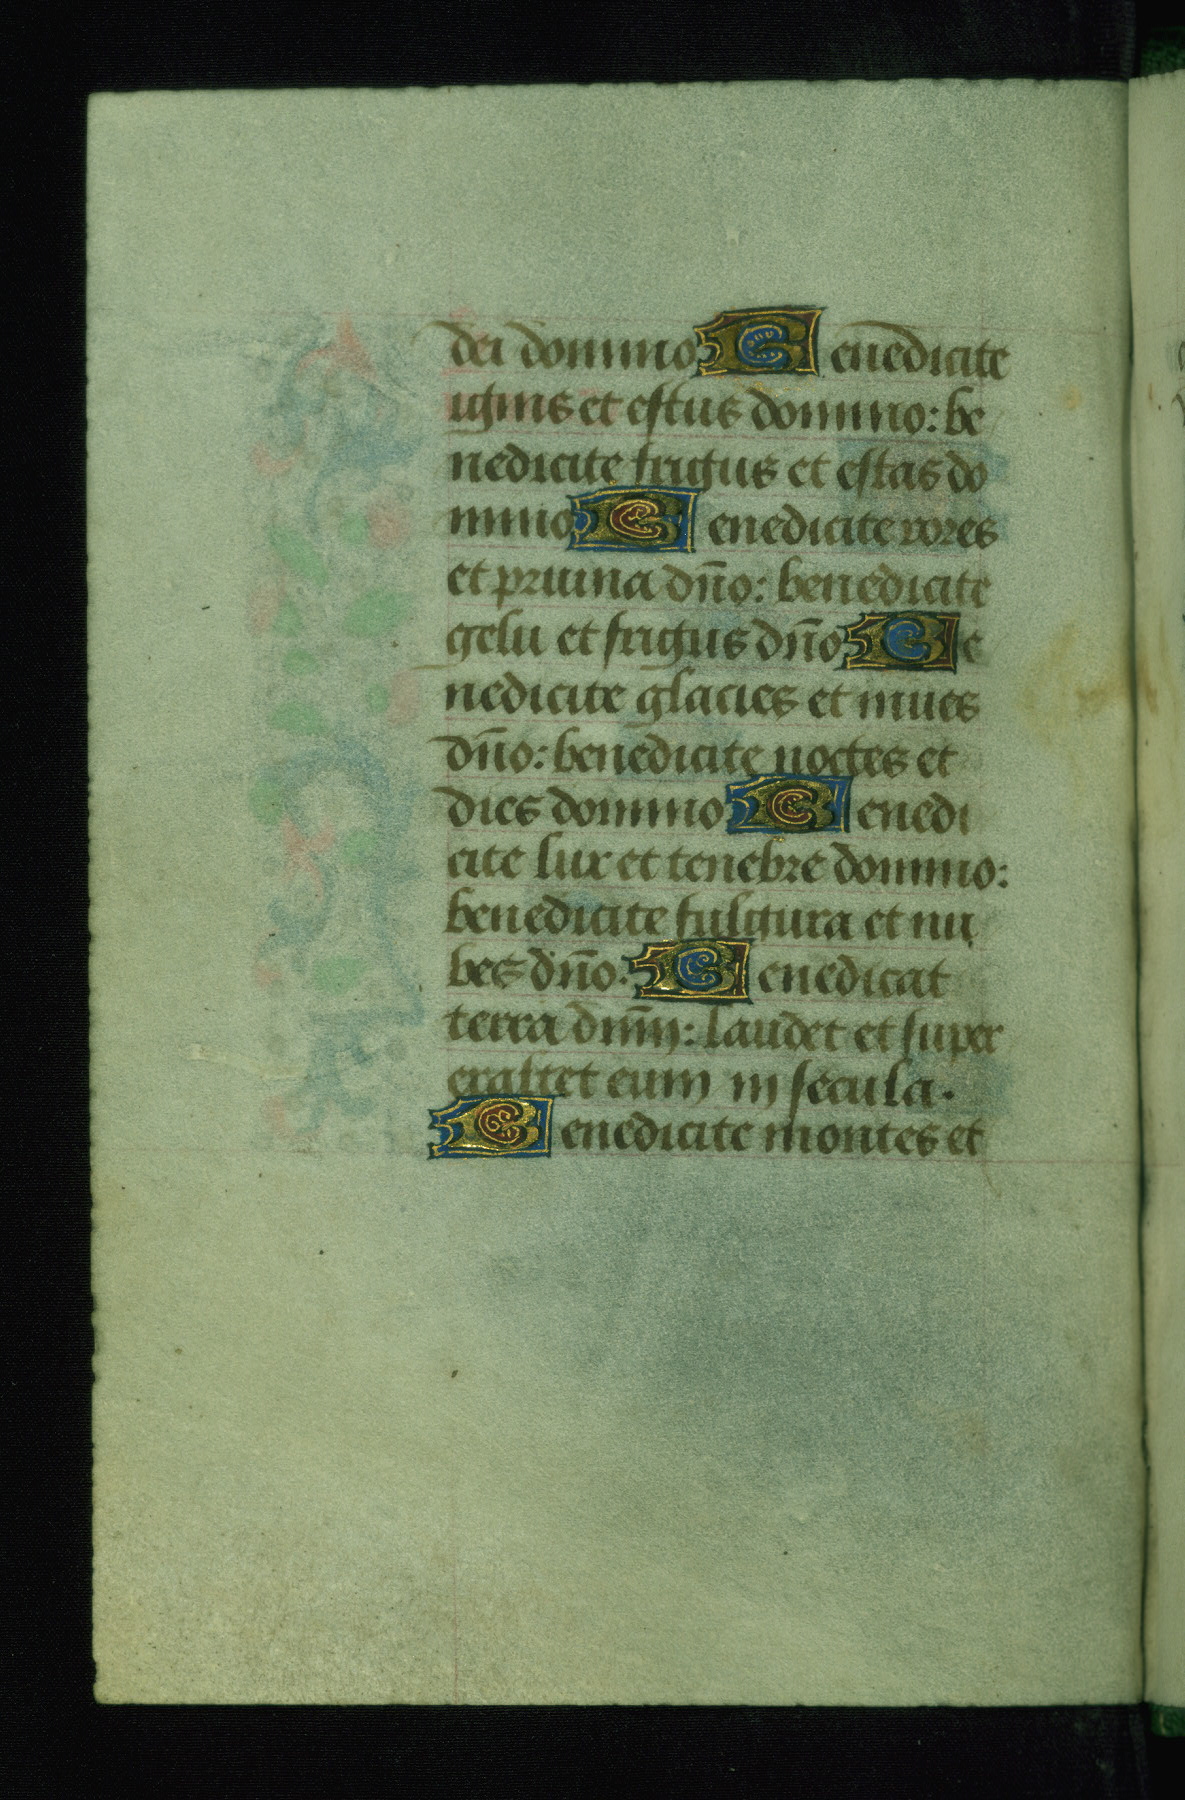 dei domino Benedicite
ignis et estus domino: be
nedicite frigus et estas do
mino Benedicite rores
et pruina dño: benedicite
gelu et frigus dño Be
nedicite glacies et niues
dño: benedicite noctes et
dies domino Benedi
cite lux et tenebre domino:
benedicite fulgura et nu
bes dño. Benedicat
terra dñm: laudet et super
exaltet eum in secula.
Benedicite montes et